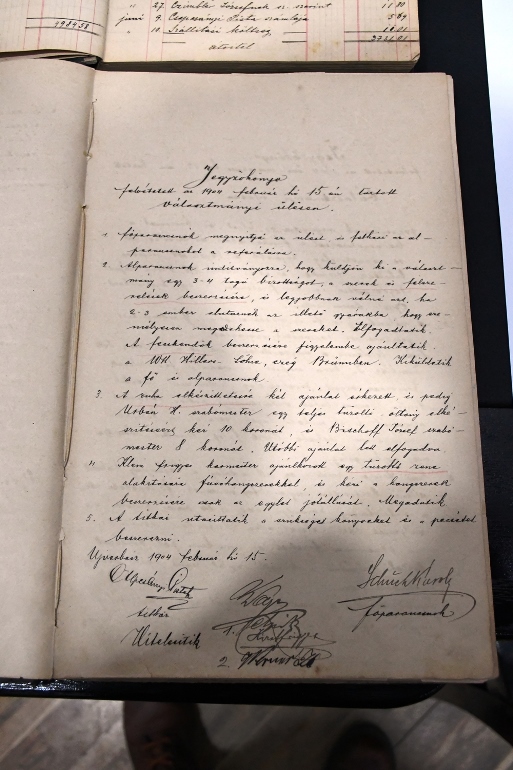 27. Czimbl Józsefnek sz. szerint 11.80
juni 9. Csepcsényi Pista számlája 5.89
" 10. Szállitási költség 16.01
499458
átvitel 3721.01
Jegyzőkönyv
felvétetett az 1904 február hó 15 én tartott
választmányi ülésen.
1. főparancsnok megnyitja az ülést és felkéri az al-
parancsnokot a referálásra.
2. Alparancsnok indítványozza, hogy küldjön ki a választ-
mány egy 3-4 tagú bizottságot a szerek és felsze-
relések beszerzésére, és legjobbnak vélné azt, ha
2-3 ember elutaznék az illető gyárakba, hogy sze-
mélyesen megnézhesse a szereket. Elfogadtatik.
A fecskendők beszerzésére figyelembe ajánltatik
a Wtt. Söhne, czég Brünnben. Kiküldetik
a fő és alparancsnok
3. A ruha elkészittetésére két ajánlat érkezett, és pedig
Urbán H. szabómester egy teljes tűzoltó öltöny elké-
szitéséért kér 10 koronát, és Bischoff József szabó-
mester 8 koronát. Utóbbi ajánlat lett elfogadva
4. Klem frigyes karmester ajánlkozik egy tűzoltó zene
alakitására fúvóhangszerekkel, és kéri a hangszerek
beszerzésére csak az egylet jótállását. Megadatik.
5. A titkár utasittatik a szükséges könyveket és a pecsétet
beszerezni.
Ujverbász 1904 február hó 15.
Csepcsényi
titkár
Hitelesitik
1.
2.
Schuch Károly
főparancsnok